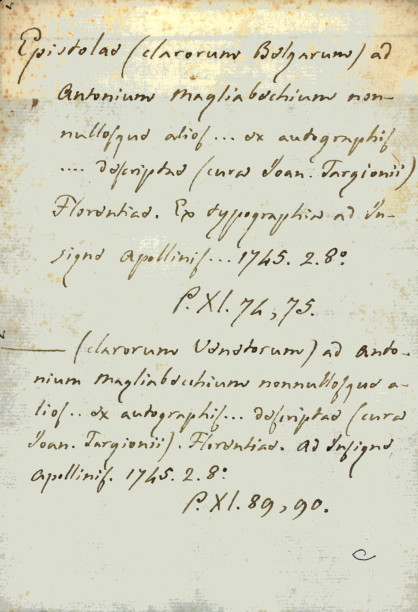 Epistolae (clarorum Belgarum) ad
Antonium Magliabechium non-
nullosque alios... ex autographis
.... descriptae (cura Ioan. Targionii)
Florentiae. Ex typographia ad In-
signe Apollinis... 1745. 2. 8°.
P. XI. 74, 75.
— (clarorum Venetorum) ad Anto-
nium Magliabecchium nonnullosque a-
lios... ex autographis... descriptae (cura
Ioan. Targionii). Florentiae. Ad Insigne
Apollinis. 1745. 2. 8°
P. XI. 89, 90.